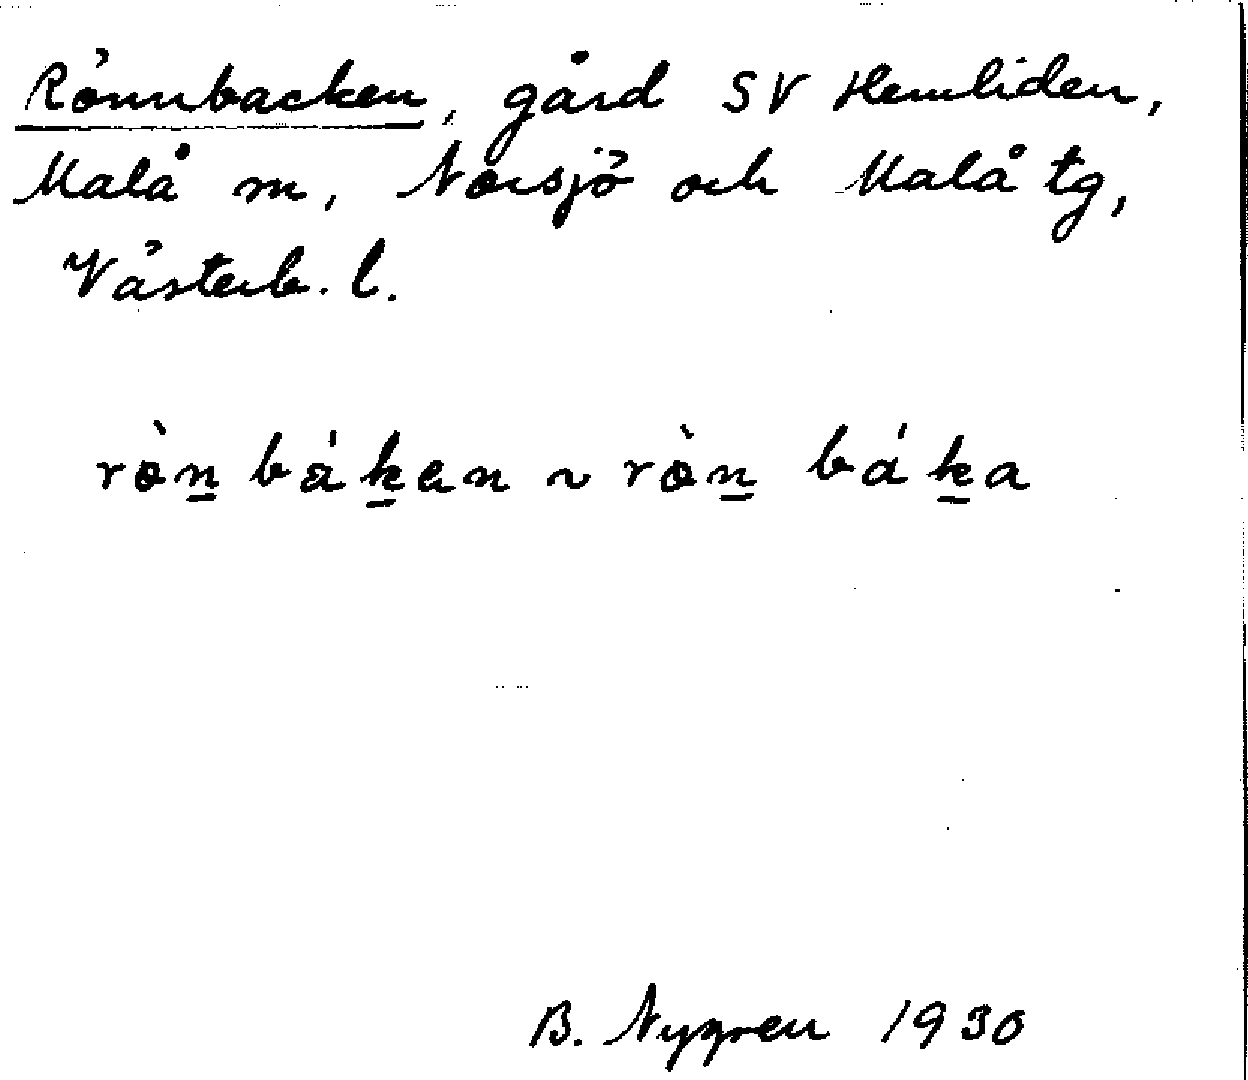 Rönnbacken, gård SV Hemliden,
Malå sn, Norsjö och Malå tg,
Västerb. l.
rò̀n̲ bák̲en ~ rò̀n̲ bák̲a
B. Nygren 1930